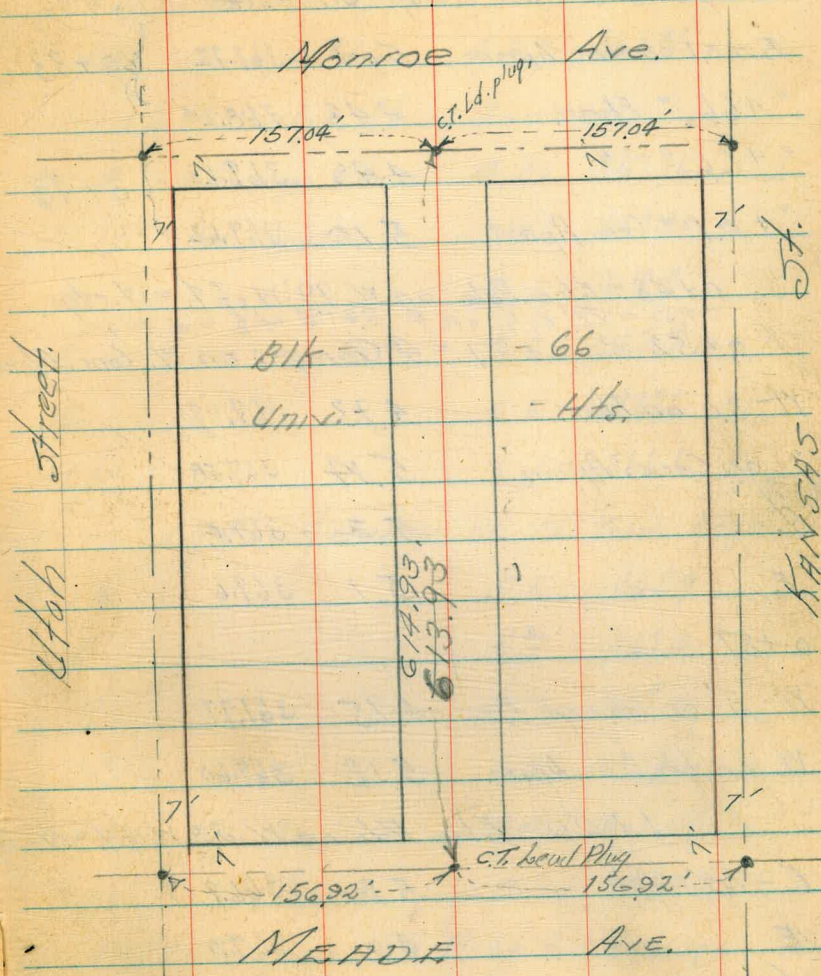 Monroe Ave.
C.T. Ld. plug.
157.04' 157.04'
7' 7'
7' 7'
Utah Street.
KANSAS St.
Blk 66
Univ. Hts.
614.93'
613.93
7' 7'
7' 7'
C.T. Lead Plug
156.92' 156.92'
MEADE AVE.